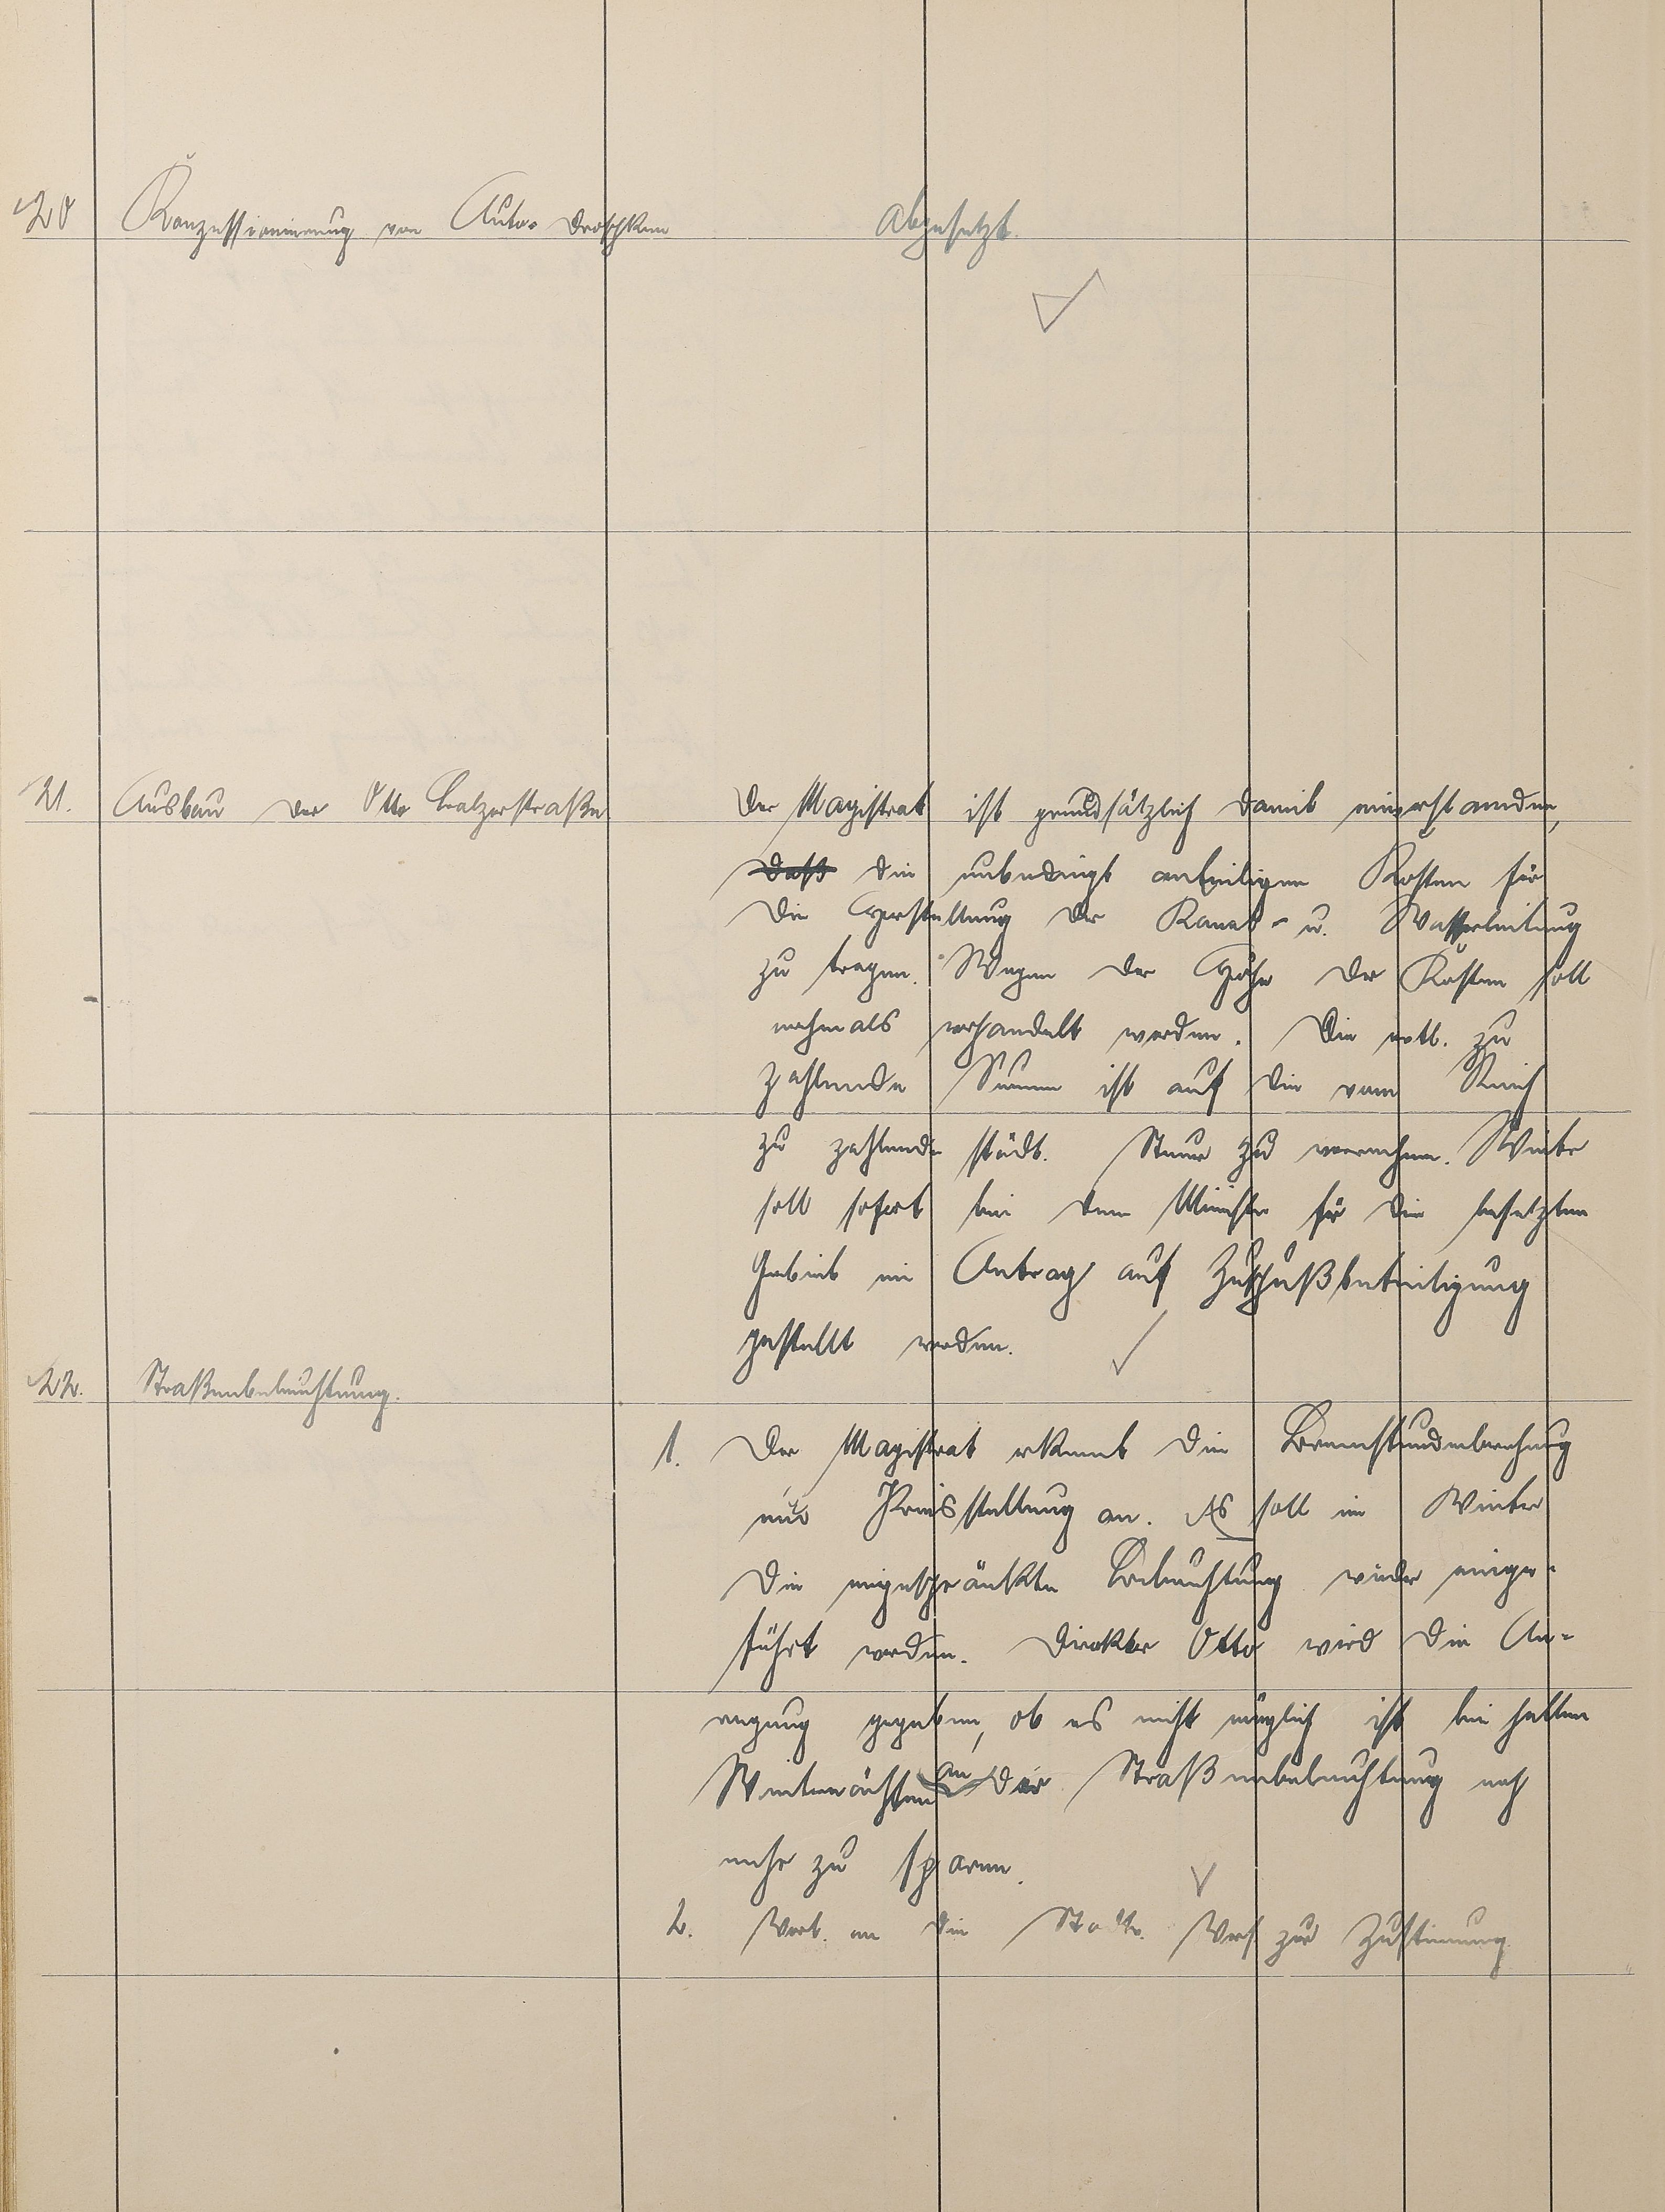 20 Konzessionierung von Auto- Droschken Abgesetzt.
21. Ausbau der Otto Balzerstraße Der Magistrat ist grundsätzlich damit einverstanden,
daß die unbedingt anteiligen Kosten für
die Herstellung der Kanal- u. Wasserleitung
zu tragen. Wegen der Höhe der Kosten soll
nochmals verhandelt werden. Die evtl. zu
zahlende Summe ist auf die vom Reich
zu zahlende städt. Steuer zu verrechnen. Weiter
soll sofort bei dem Minister für die besetzten
Gebiete ein Antrag auf Zuschußbeteiligung
gestellt werden.
22. Straßenbeleuchtung.
1. Der Magistrat erkennt die Brennstundenberechnung
und Preisstellung an. Es soll im Winter
die eingeschränkte Beleuchtung wieder einge-
führt werden. Direktor Otto wird die An-
regung gegeben, ob es nicht möglich ist bei hellen
Winternächten an der Straßenbeleuchtung noch
mehr zu sparen.
2. Vorl. an die Stadtv. Vers. zur Zustimmung.